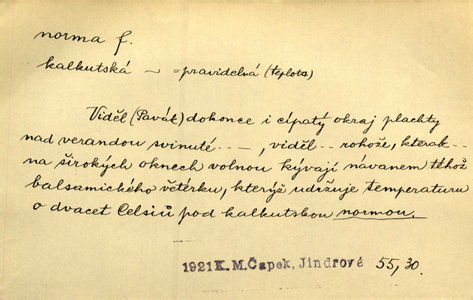 norma f.
kalkutská → = pravidelná (teplota)
Viděl (Pavák) dokonce i cípatý okraj plachty
nad verandou svinuté - - -, viděl - - rohože, kterak - -
na širokých oknech volnou kývají návanem téhož
balsamického větérku, kterýž udržuje temperaturu
o dvacet Celsiů pod kalkutskou normou.
1921 K. M. Čapek, Jindrové 55, 30.